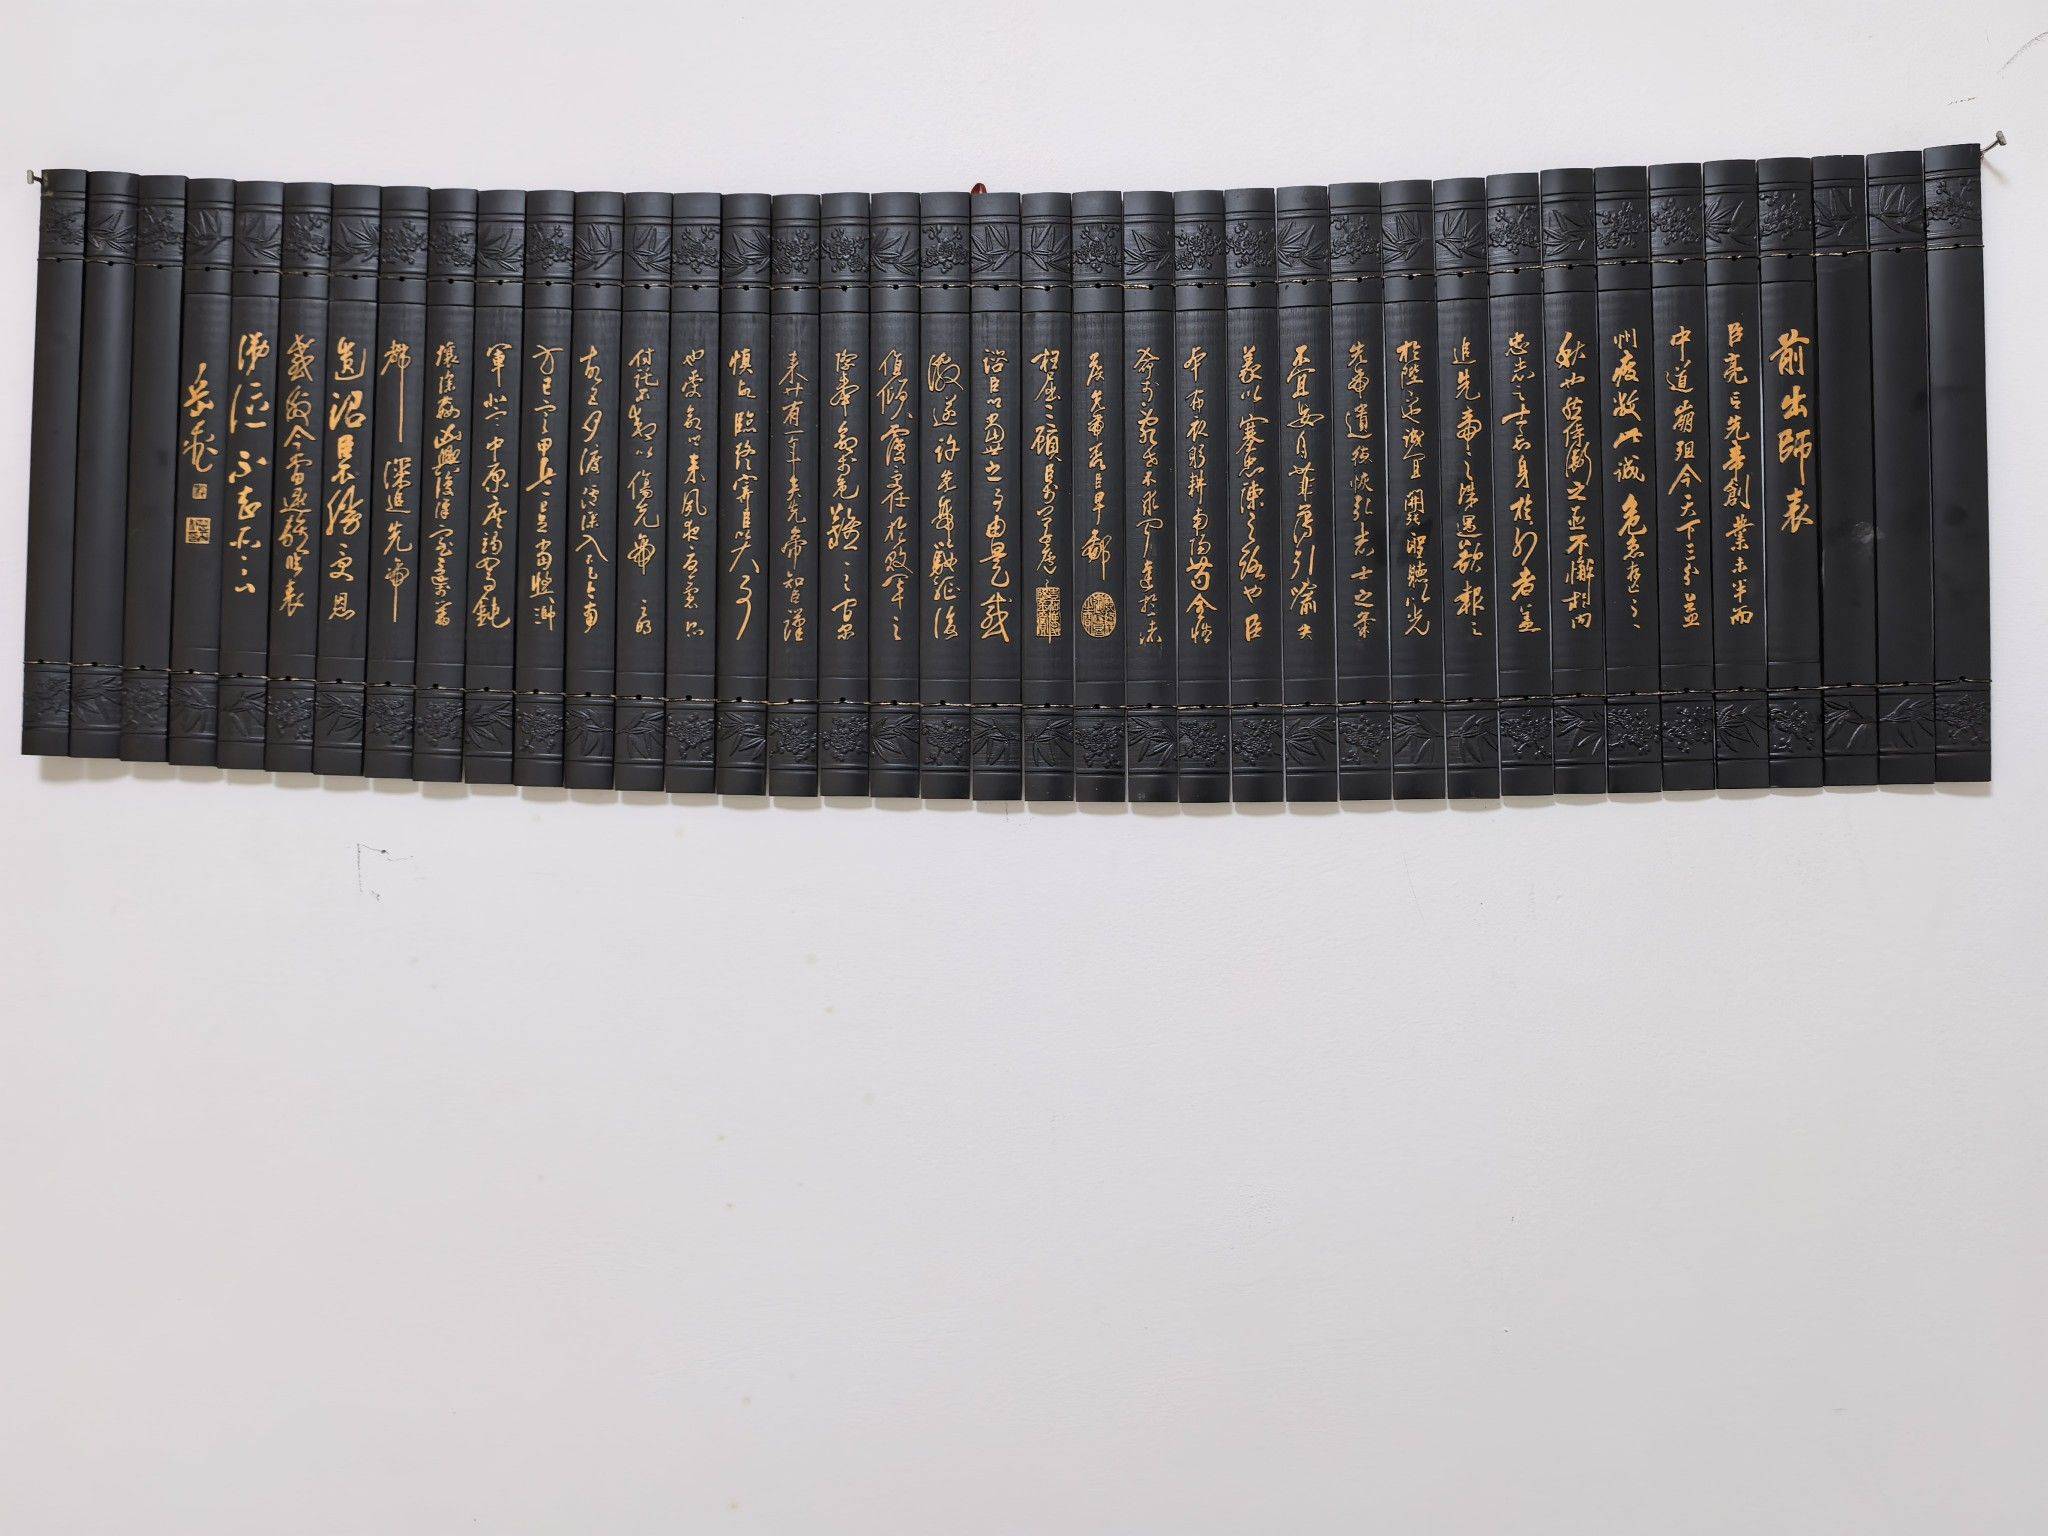 前出師表
臣亮言先帝創業未半而
中道崩殂今天下三分益
州疲敝此誠危急存亡之
秋也然侍衛之臣不懈於內
忠志之士忘身於外者蓋
追先帝之殊遇欲報之
於陛下也誠宜開張聖聽以光
先帝遺德恢弘志士之氣
不宜妄自菲薄引喻失
義以塞忠諫之路也臣
本布衣躬耕南陽苟全性
命於亂世不求聞達於諸
侯先帝不以臣卑鄙
枉屈三顧臣於草廬
諮臣以當世之事由是感
激遂許先帝以驅馳後
值傾覆受任於敗軍之
際奉命於危難之間
來廿有一年矣先帝知臣謹
慎故臨終寄臣以大事
也受命以來夙夜憂慮恐
付託不效以傷先帝之明
故五月渡瀘深入不毛今南
方已定甲兵已足當獎帥
軍北定中原庶竭駑鈍
攘除姦凶興復漢室還於舊
都深追先帝
遺詔臣不勝受恩
感激今當遠離臨表
涕泣不知所云
岳飛